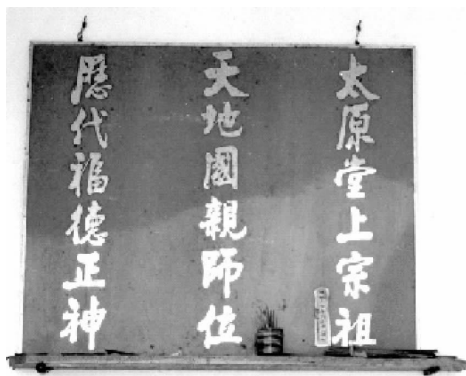 太原堂上宗祖
天地國親師位
歷代福德正神